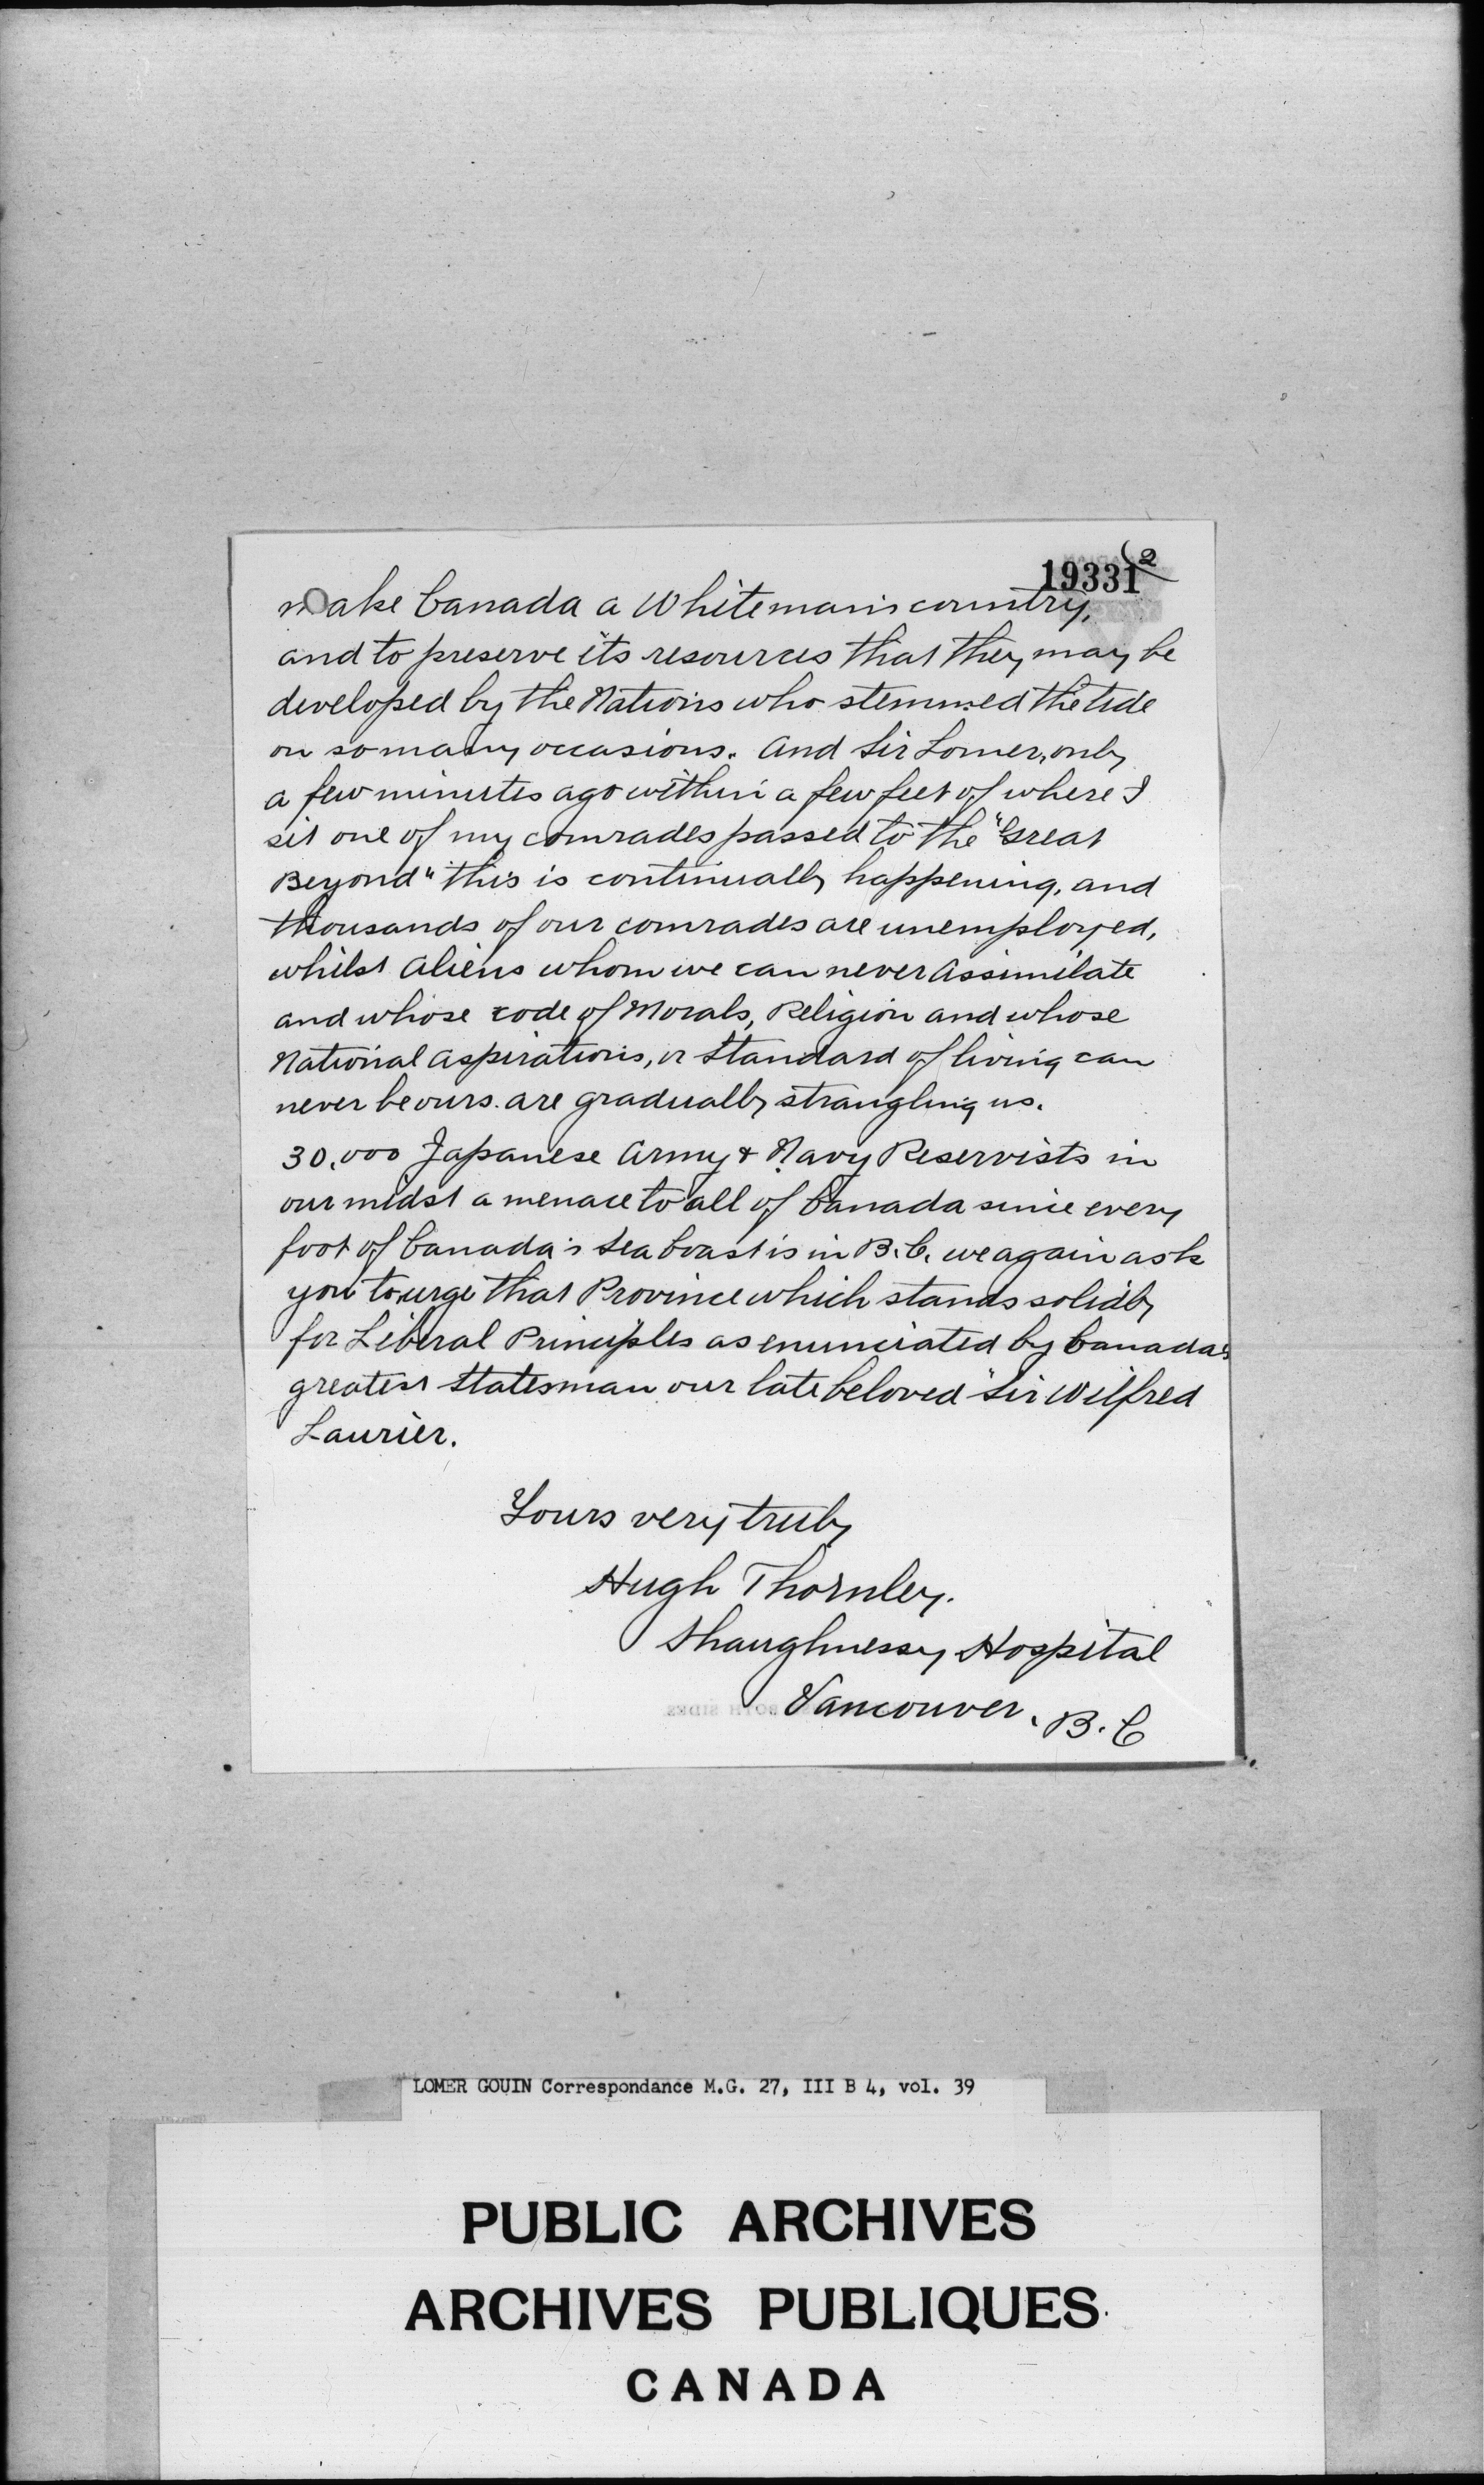 (2
19331
make Canada a Whiteman's country,
and to preserve its resources that they may be
developed by the Nations who stemmed the tide
on so many occasions. And Sir Lomer, only
a few minutes ago within a few feet of where I
sit one of my comrades passed to the "Great
Beyond" this is continually happening, and
thousands of our comrades are unemployed,
whilst Aliens whom we can never Assimilate
and whose code of Morals, Religion and whose
National Aspirations, or Standard of living can
never be ours. are gradually strangling us.
30,000 Japanese Army & Navy Reservists in
our midst a menace to all of Canada since every
foot of Canada's Sea Coast is in B.C. we again ask
you to urge that Province which stands solidly
for Liberal Principles as enunciated by Canada's
greatest Statesman our late beloved "Sir Wilfred
Laurier.
Yours very truly
Hugh Thornley.
Shaughnessy Hospital
Vancouver, B.C
LOMER GOUIN Correspondance M.G. 27, III B 4, vol. 39
PUBLIC ARCHIVES
ARCHIVES PUBLIQUES
CANADA